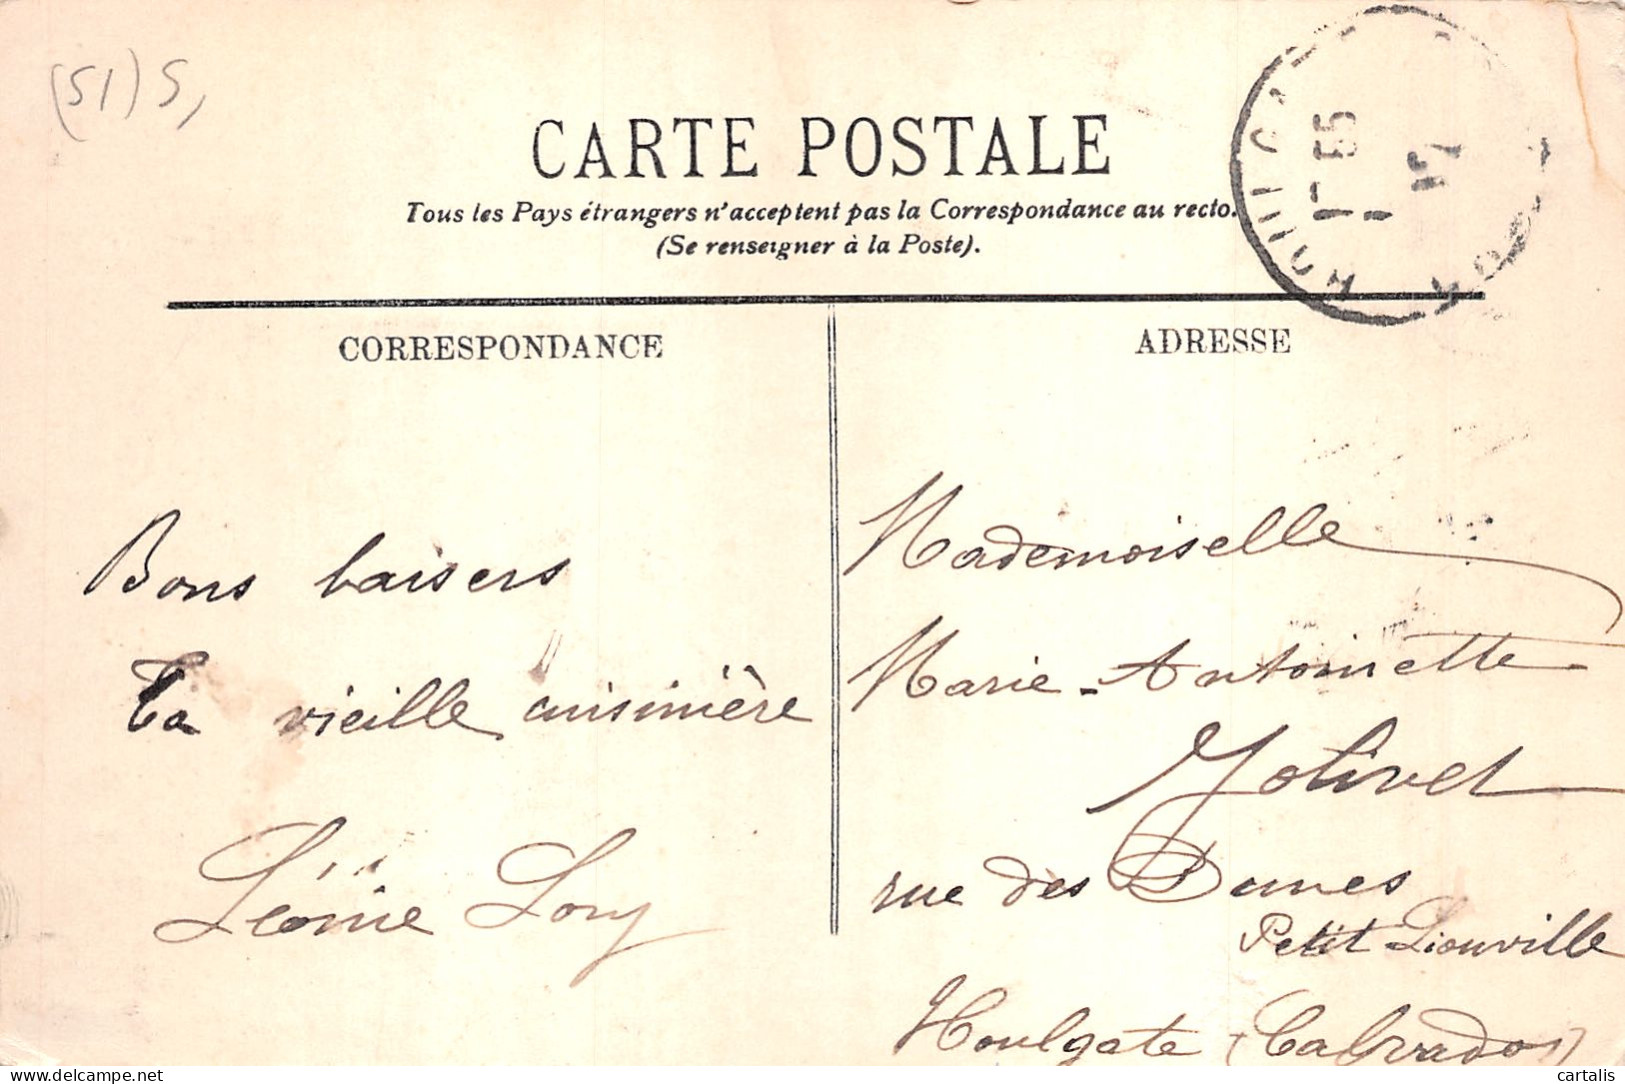 (51) S,
CARTE POSTALE
Tous les Pays étrangers n'acceptent pas la Correspondance au recto.
(Se renseigner à la Poste).
CORRESPONDANCE
ADRESSE
Bons baisers
Ta vieille cuisinière
Léonie Lory
Mademoiselle
Marie-Antoinette
Jolivet
rue des Dunes
Petit Liouville
Houlgate (Calvados)
cartalis